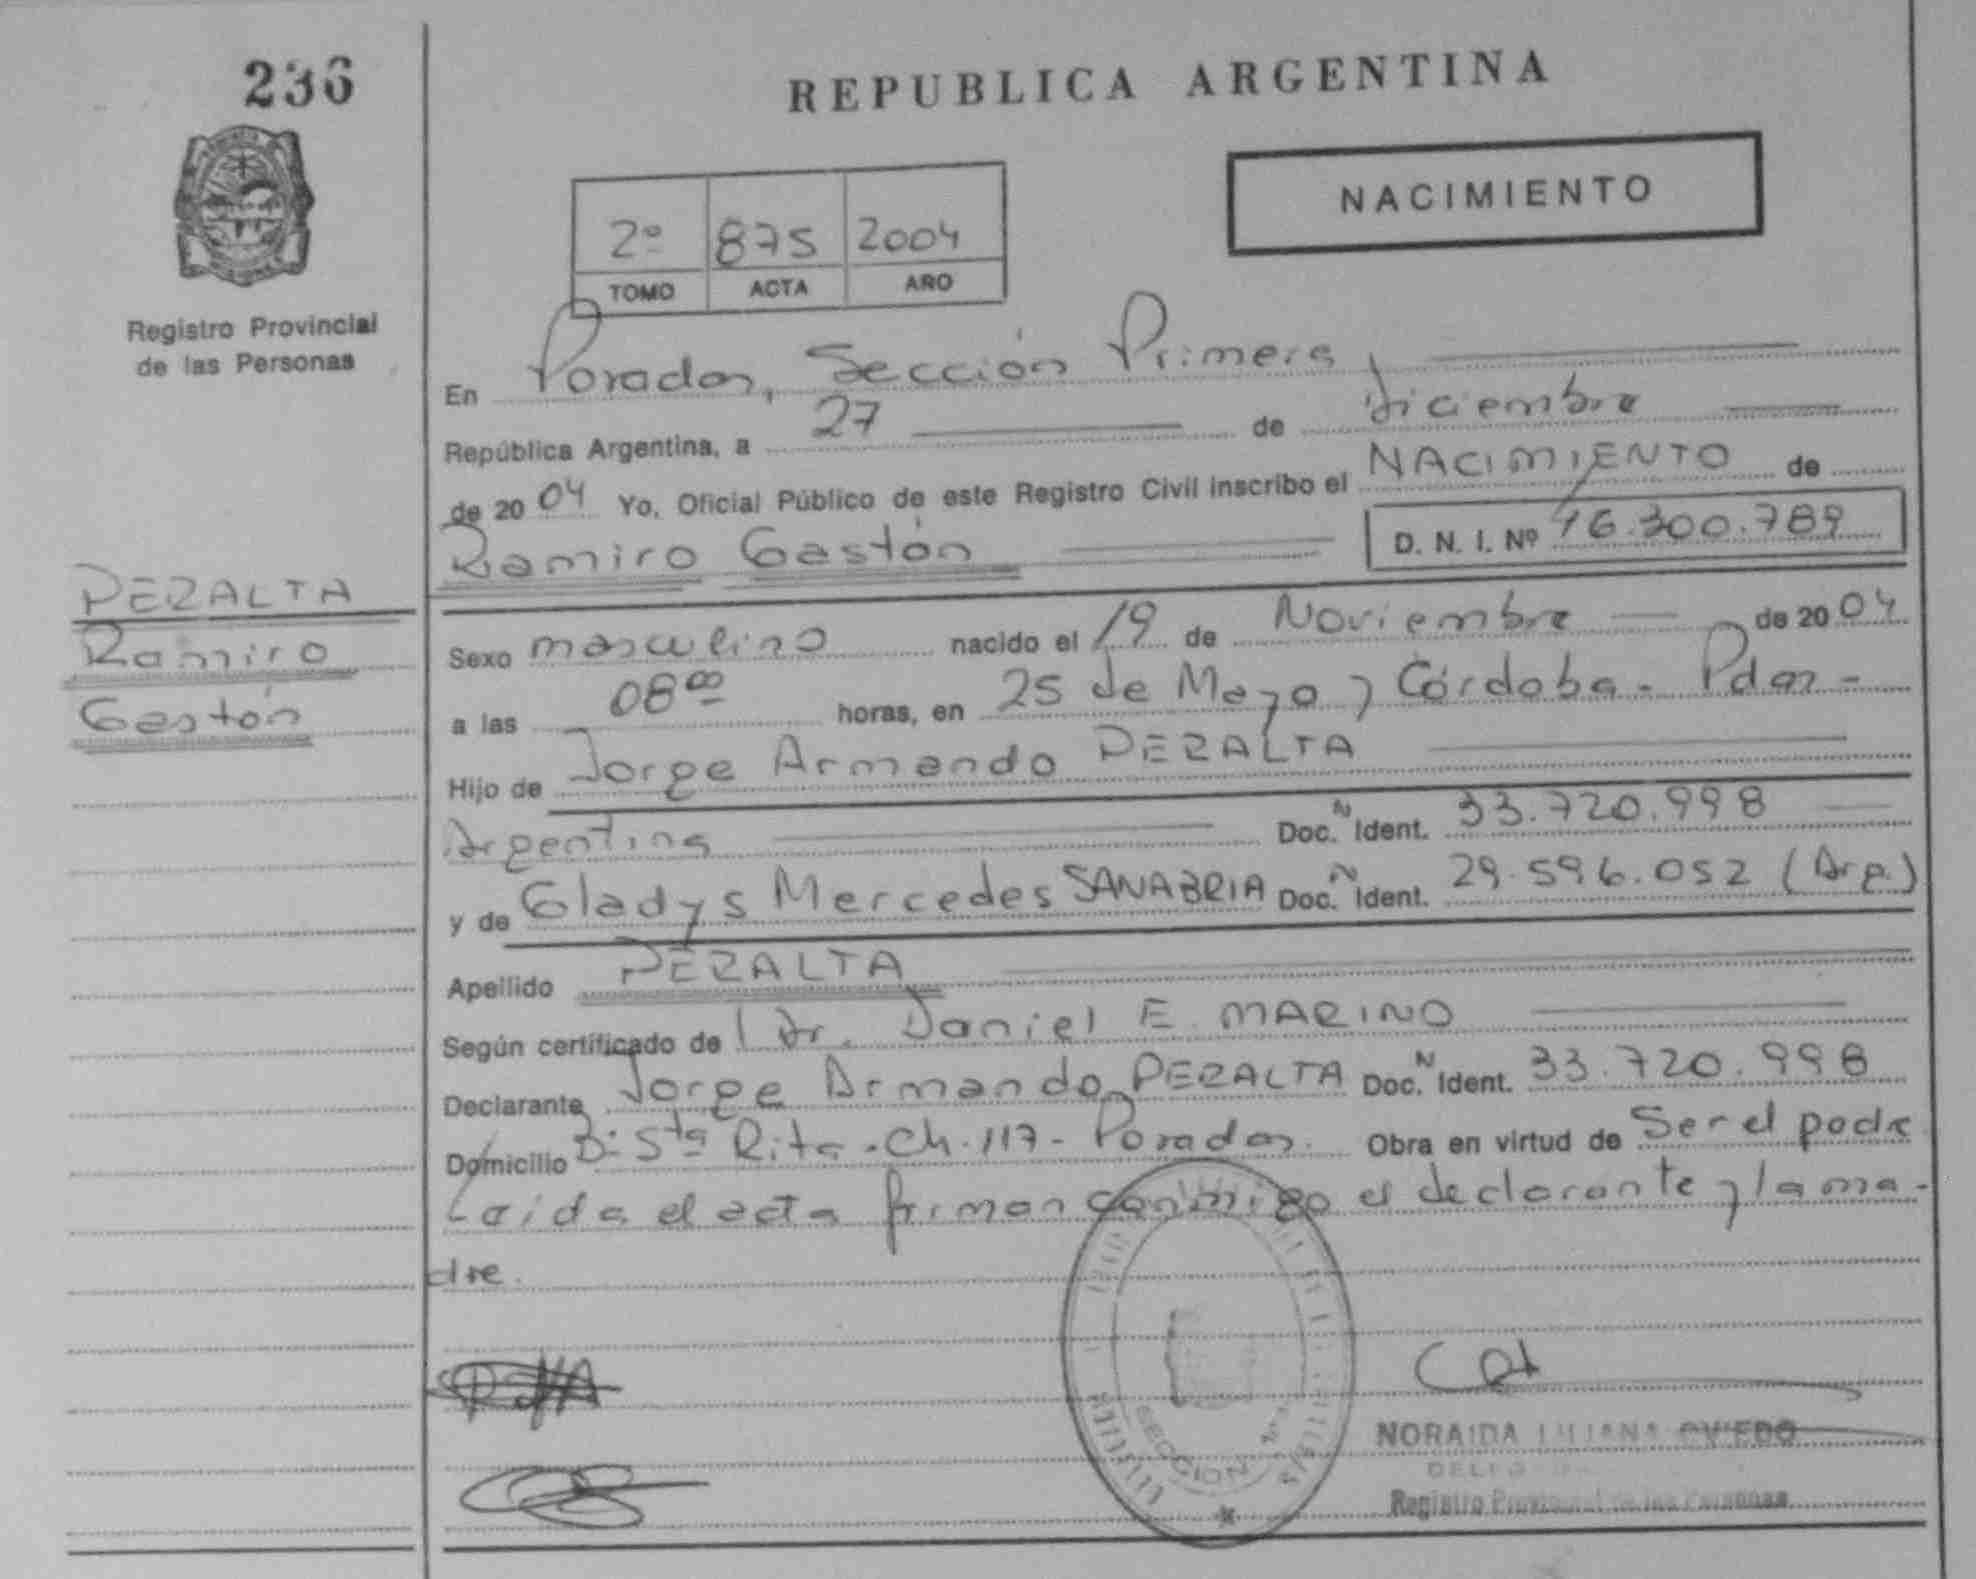 236
REPUBLICA ARGENTINA
NACIMIENTO
2º 875 2004
TOMO ACTA AÑO
Registro Provincial
de las Personas
En Posadas, Sección Primera,
República Argentina, a 27 de diciembre
de 2004 Yo, Oficial Público de este Registro Civil inscribo el NACIMIENTO de
Ramiro Gastón D. N. I. Nº 46.300.789
PERALTA
Ramiro
Gastón
Sexo masculino nacido el 19 de Noviembre de 2004
a las 08⁰⁰ horas, en 25 de Mayo y Córdoba - Pdas -
Hijo de Jorge Armando PERALTA
Argentina Doc. N Ident. 33.720.998
y de Gladys Mercedes SANABRIA Doc. N Ident. 29.596.052 (Arg.)
Apellido PERALTA
Según certificado de Dr. Daniel E. MARINO
Declarante Jorge Armando PERALTA Doc. N Ident. 33.720.998
Domicilio B: Sta Rita - Ch. 117 - Posadas. Obra en virtud de Ser el padre
Leída el acta firman conmigo el declarante y la ma-
dre.
SECCION
NORAIDA LILIANA OVIEDO
Registro Provincial de las Personas